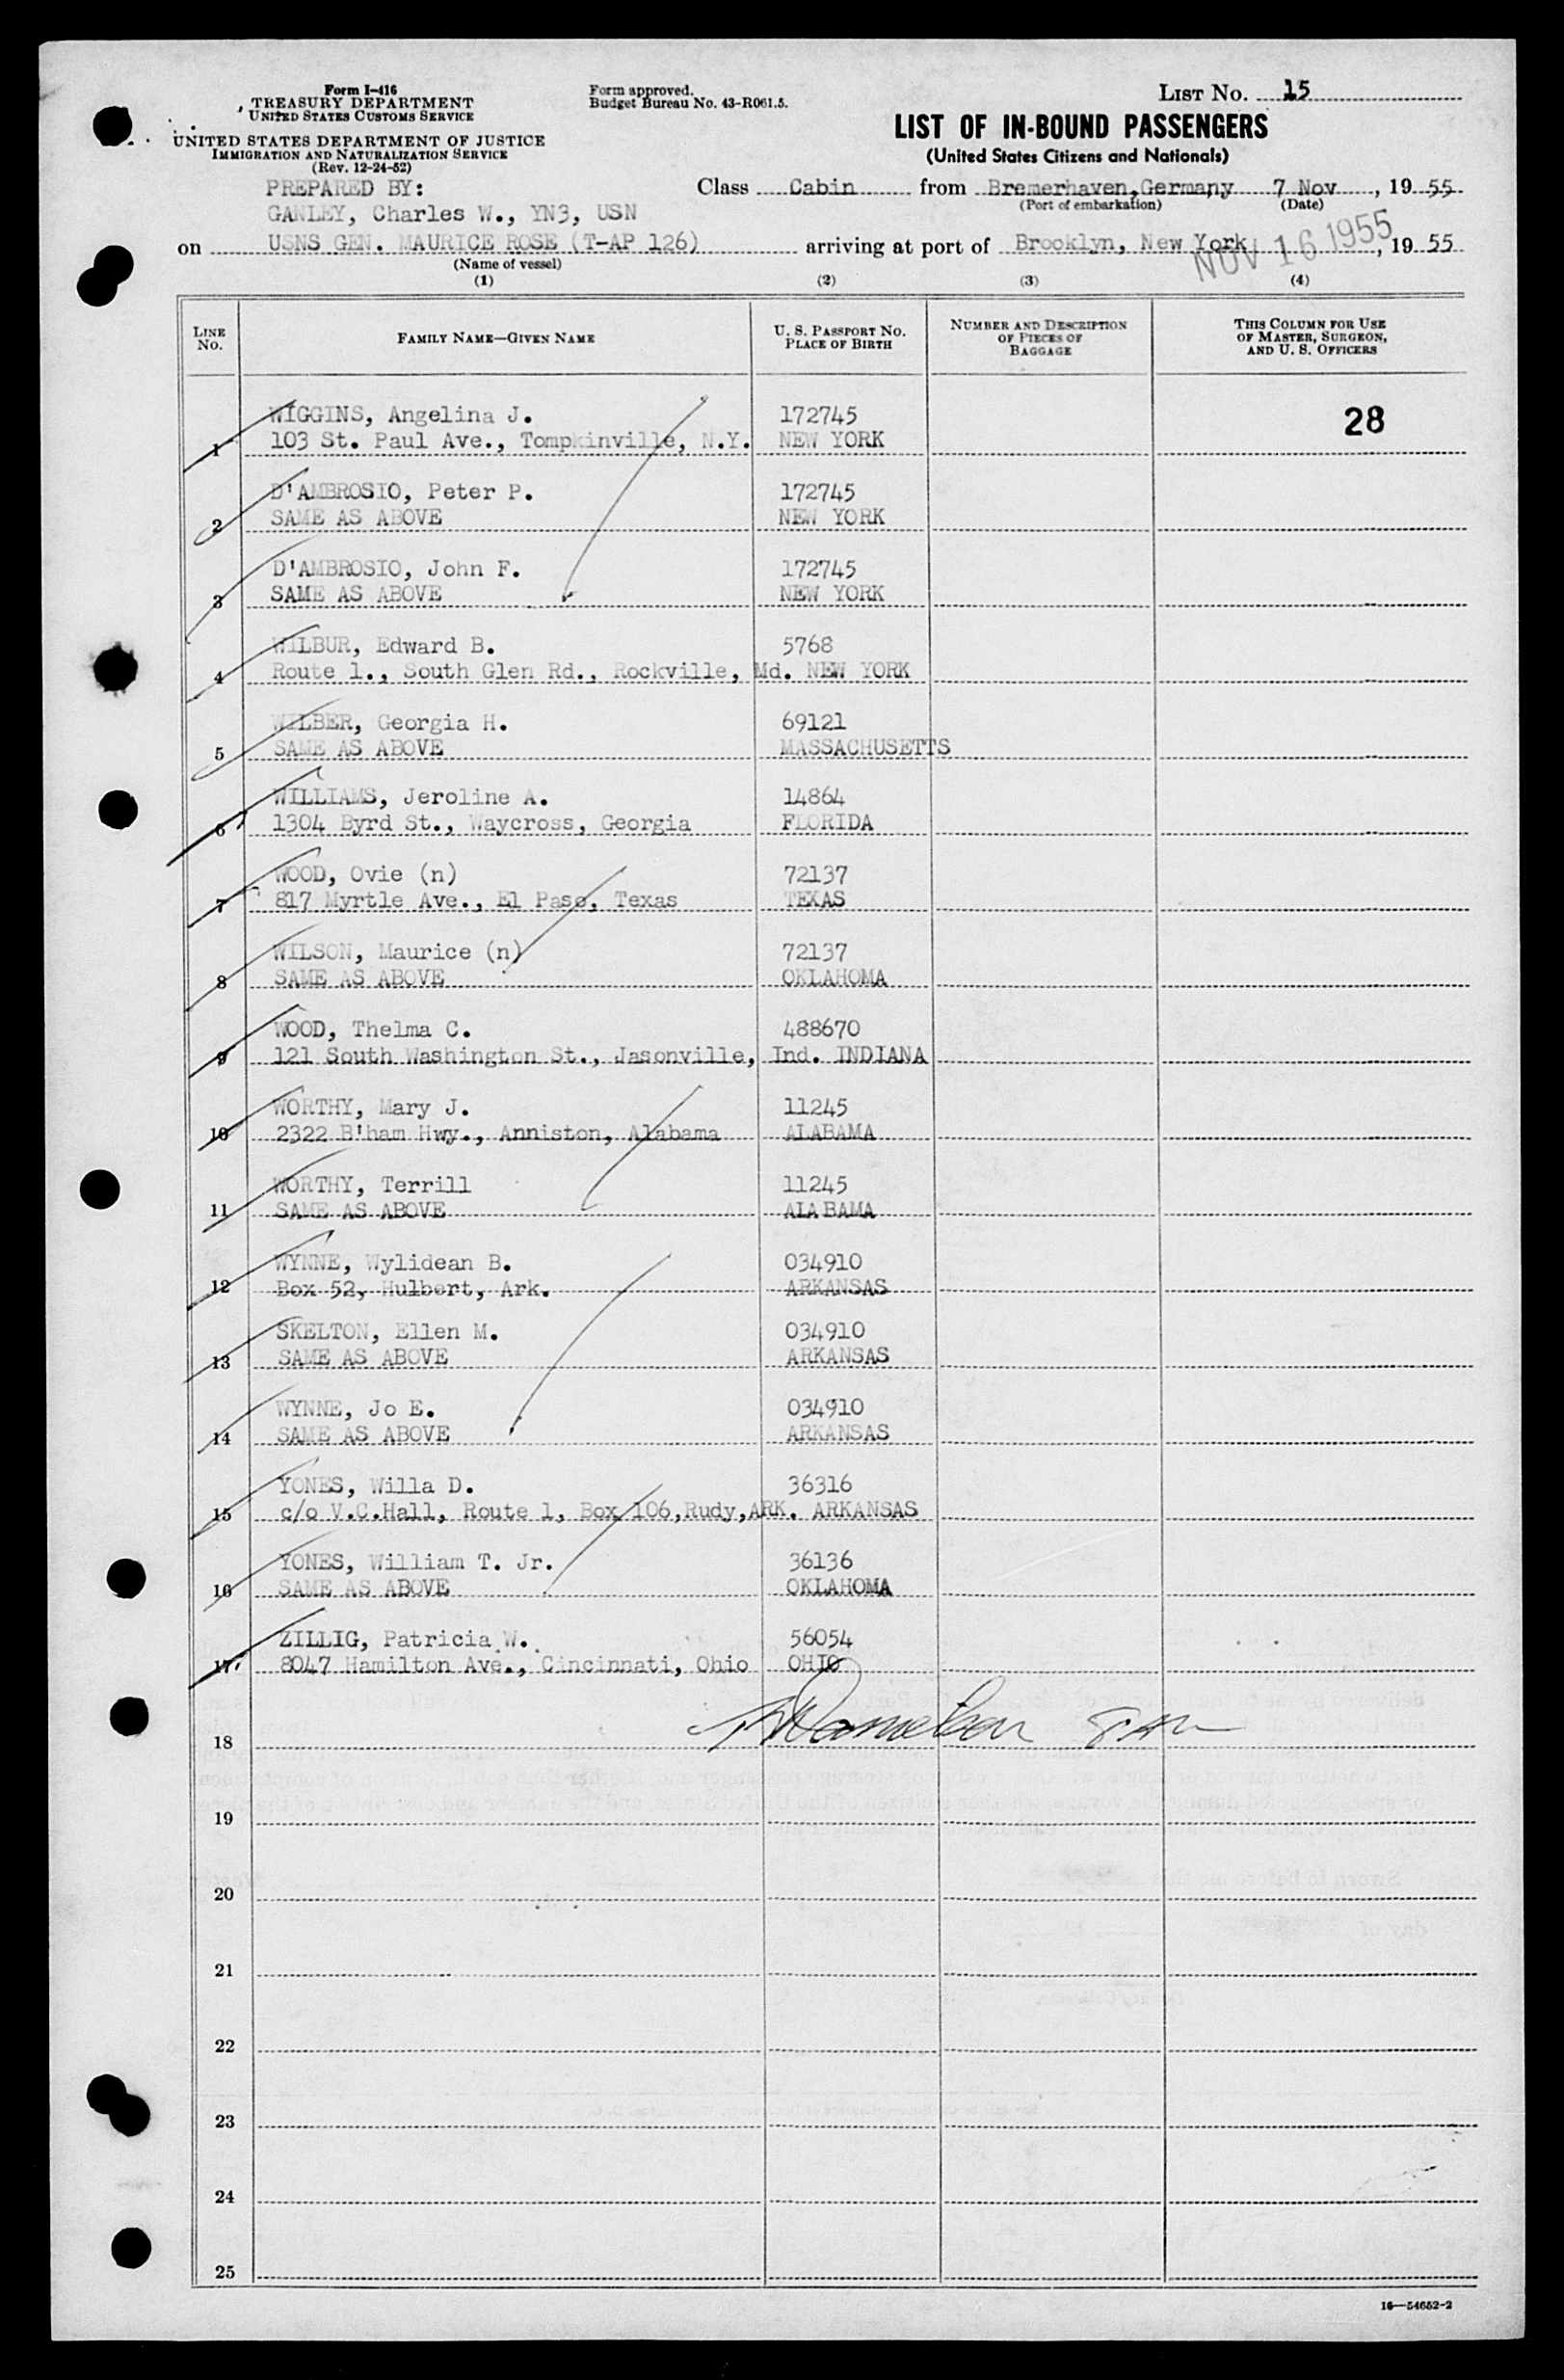 Form I-416
TREASURY DEPARTMENT
UNITED STATES CUSTOMS SERVICE
UNITED STATES DEPARTMENT OF JUSTICE
IMMIGRATION AND NATURALIZATION SERVICE
(Rev. 12-24-52)
Form approved.
Budget Bureau No. 43-R061.5.
LIST No. 15
LIST OF IN-BOUND PASSENGERS
(United States Citizens and Nationals)
PREPARED BY:
GANLEY, Charles W., YN3, USN
Class Cabin from Bremerhaven,Germany 7 Nov, 19 55
(Port of embarkation) (Date)
on USNS GEN. MAURICE ROSE (T-AP 126) arriving at port of Brooklyn, New York, 19 55
NOV 16 1955
(Name of vessel)
(1) (2) (3) (4)
LINE No. FAMILY NAME—GIVEN NAME U. S. PASSPORT NO. PLACE OF BIRTH NUMBER AND DESCRIPTION OF PIECES OF BAGGAGE THIS COLUMN FOR USE OF MASTER, SURGEON, AND U. S. OFFICERS
WIGGINS, Angelina J. 172745 28
1 103 St. Paul Ave., Tompkinville, N.Y. NEW YORK
D'AMBROSIO, Peter P. 172745
2 SAME AS ABOVE NEW YORK
D'AMBROSIO, John F. 172745
3 SAME AS ABOVE NEW YORK
WILBUR, Edward B. 5768
4 Route 1., South Glen Rd., Rockville, Md. NEW YORK
WILBER, Georgia H. 69121
5 SAME AS ABOVE MASSACHUSETTS
WILLIAMS, Jeroline A. 14864
6 1304 Byrd St., Waycross, Georgia FLORIDA
WOOD, Ovie (n) 72137
7 817 Myrtle Ave., El Paso, Texas TEXAS
WILSON, Maurice (n) 72137
8 SAME AS ABOVE OKLAHOMA
WOOD, Thelma C. 488670
9 121 South Washington St., Jasonville, Ind. INDIANA
WORTHY, Mary J. 11245
10 2322 B'ham Hwy., Anniston, Alabama ALABAMA
WORTHY, Terrill 11245
11 SAME AS ABOVE ALABAMA
WYNNE, Wylidean B. 034910
12 Box 52, Hulbert, Ark. ARKANSAS
SKELTON, Ellen M. 034910
13 SAME AS ABOVE ARKANSAS
WYNNE, Jo E. 034910
14 SAME AS ABOVE ARKANSAS
YONES, Willa D. 36316
15 c/o V.C.Hall, Route 1, Box 106,Rudy,ARK. ARKANSAS
YONES, William T. Jr. 36136
16 SAME AS ABOVE OKLAHOMA
ZILLIG, Patricia W. 56054
17 8047 Hamilton Ave., Cincinnati, Ohio OHIO
18
19
20
21
22
23
24
25
16—54652-2